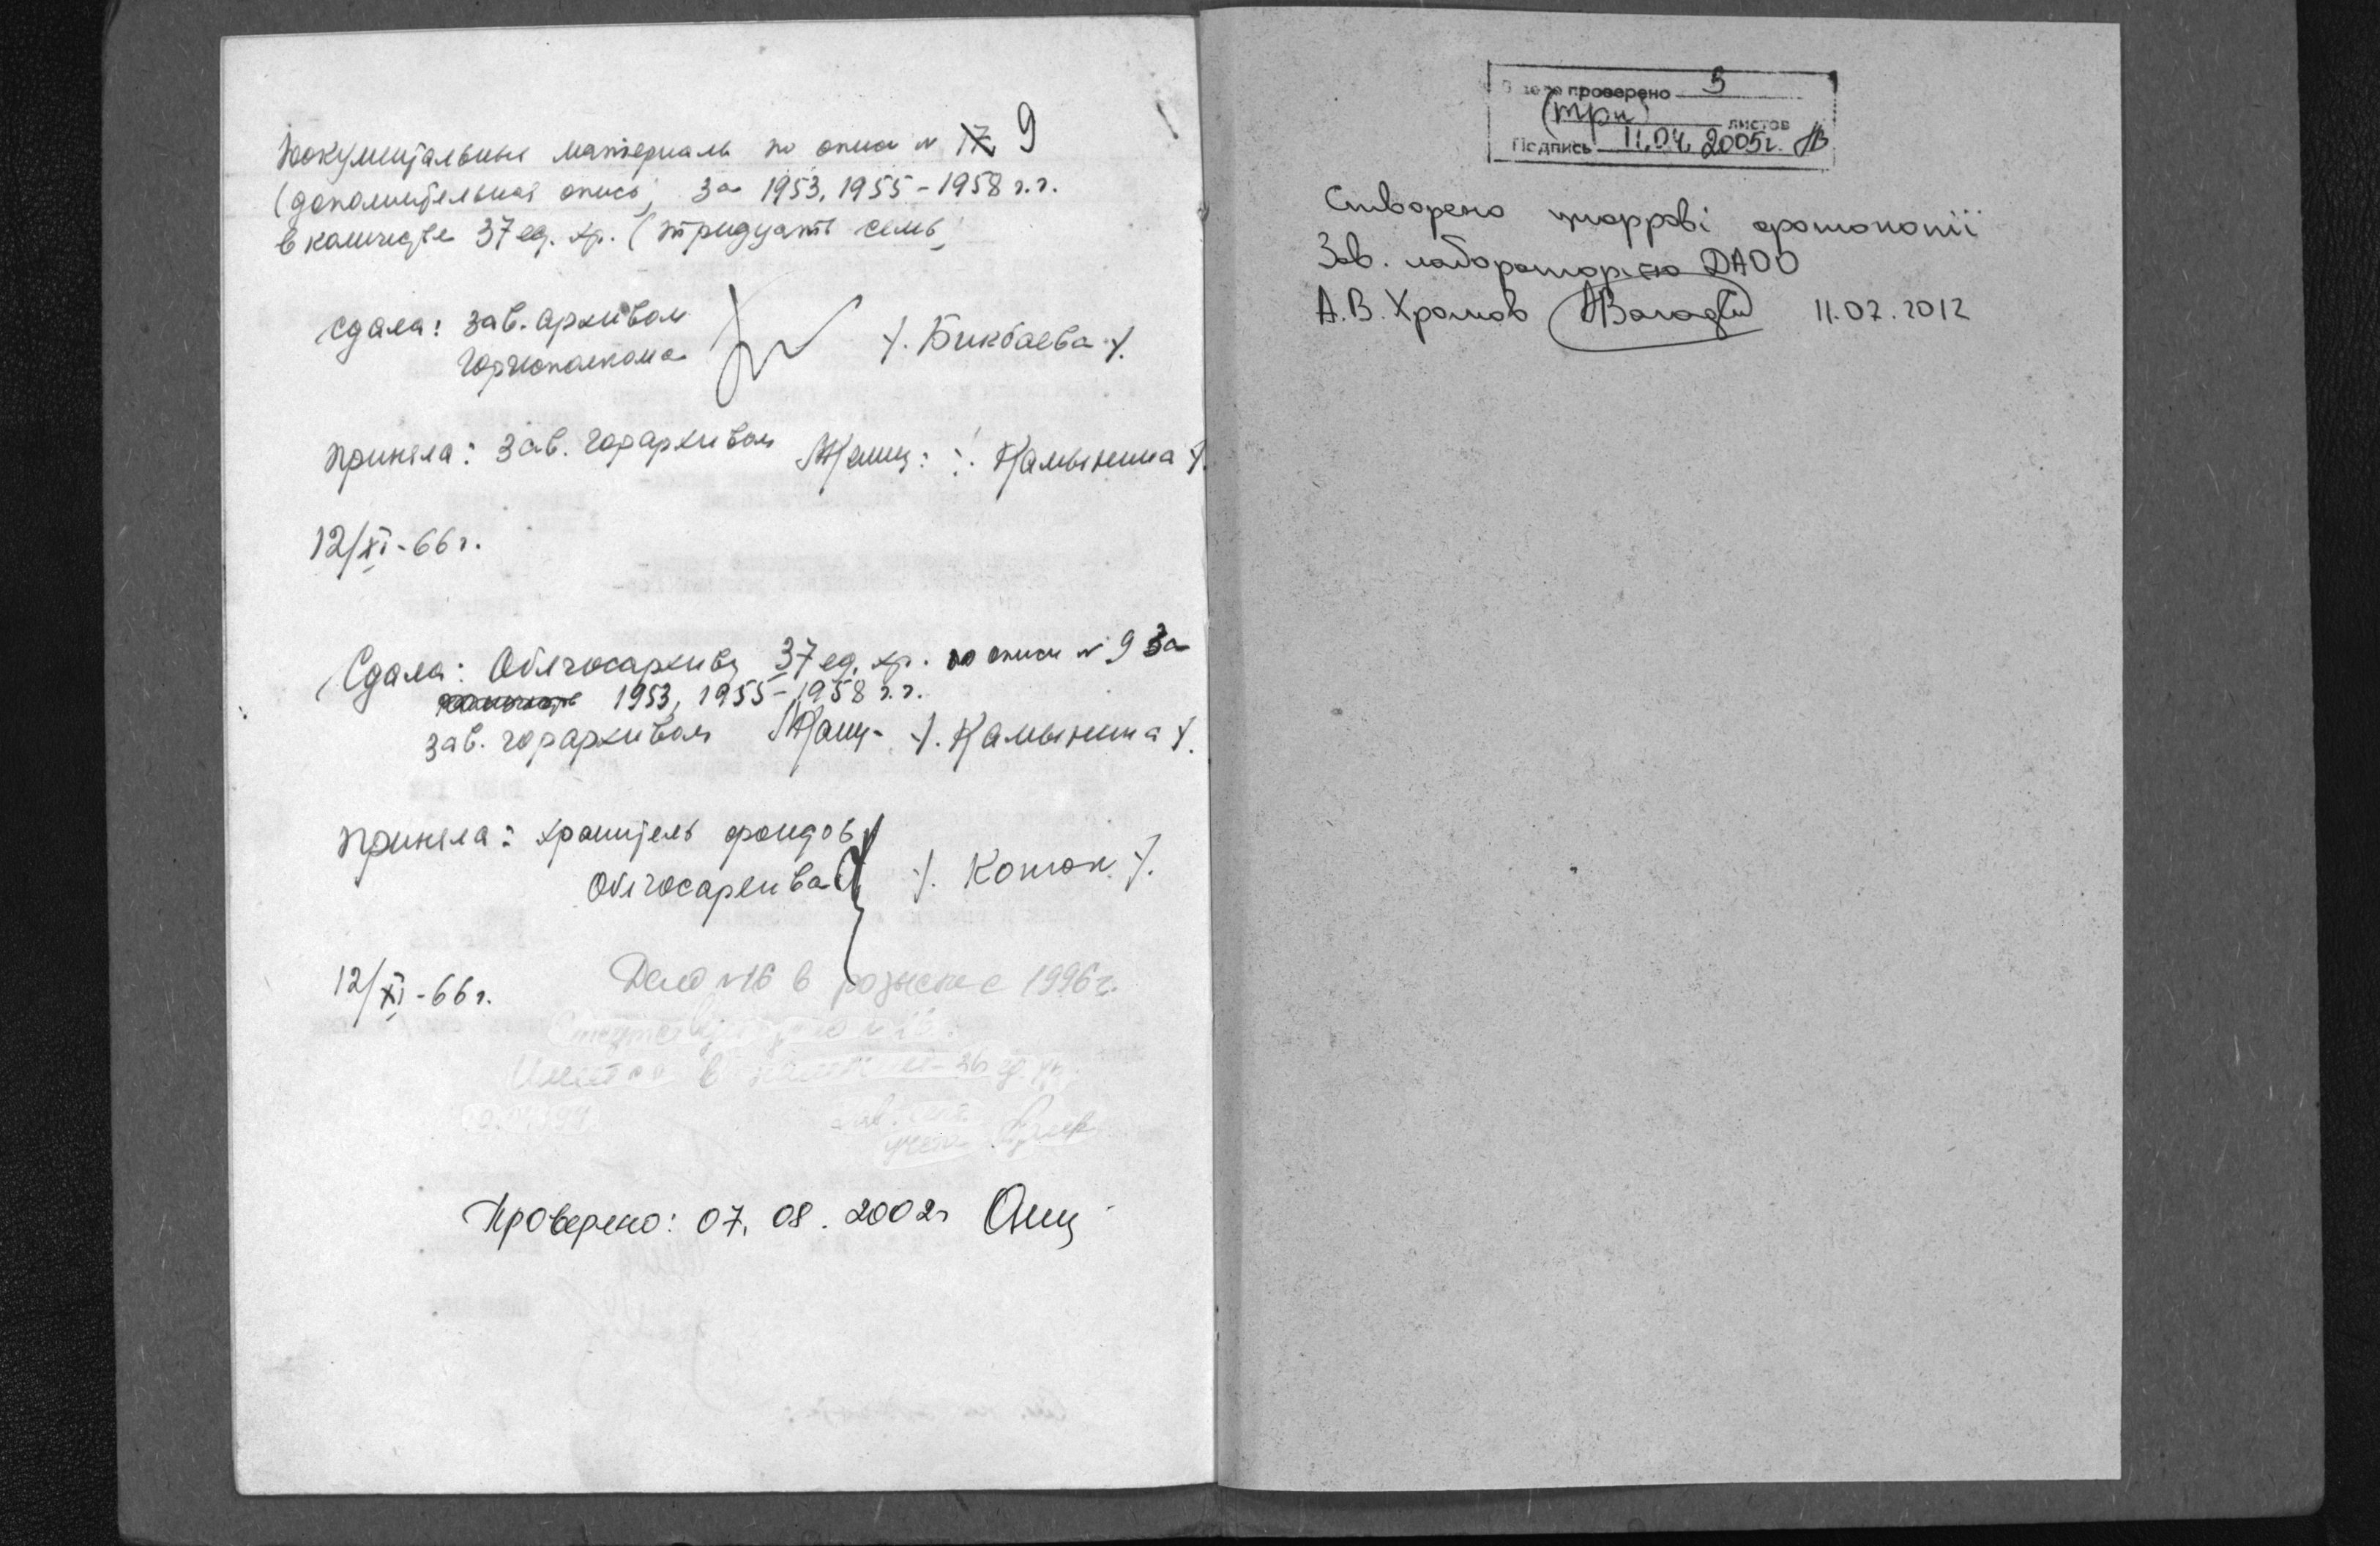 Документальные материалы по описи № 17 9
(дополнительная опись) за 1953, 1955-1958 г.г.
в количестве 37 ед. хр. (тридцать семь)
Сдала: зав. архивом
горисполкома /. Бикбаева /.
Приняла: зав. горархивом /. Камынина /.
12/XI-66 г.
Сдала: Облгосархиву 37 ед. хр. по описи № 9 за
1953, 1955-1958 г.г.
зав. горархивом /. Камынина /.
Приняла: хранитель фондов
Облгосархива /. Котюк /.
12/XI-66 г.
Дело №16 в розыске с 1996 г.
Имеется в 36 ед. хр.
Проверено: 07. 08. 2002 г
В деле проверено 3
(три) листов
Подпись 11.04.2005г.
Створено цифрові фотокопії
Зав. лабораторією ДАОО
А.В. Хромов 11.07.2012